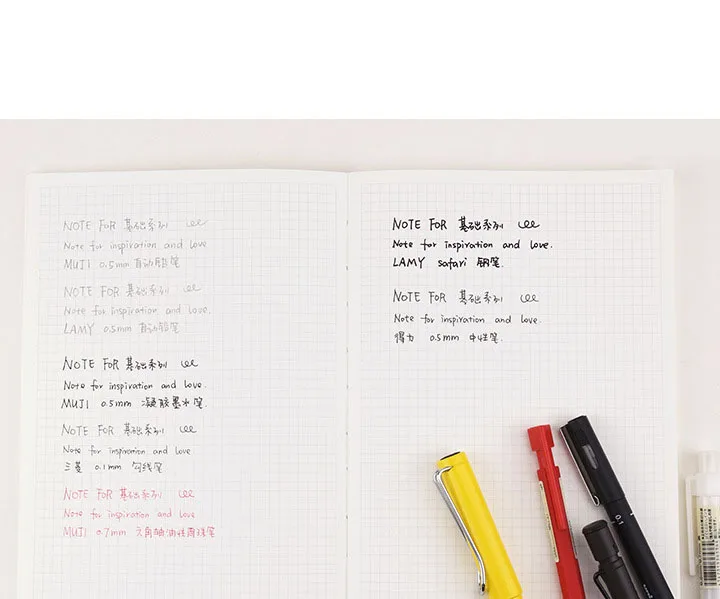 NOTE FOR 基础系列
Note for inspiration and love
MUJI 0.5mm 自动铅笔
NOTE FOR 基础系列
Note for inspiration and love.
LAMY 0.5mm 自动铅笔
NOTE FOR 基础系列
Note for inspiration and love.
MUJI 0.5mm 凝胶墨水笔.
NOTE FOR 基础系列
Note for inspiration and love
三菱 0.1mm 勾线笔
NOTE FOR 基础系列
Note for inspiration and love
MUJI 0.7mm 六角轴油性圆珠笔
NOTE FOR 基础系列
Note for inspiration and love.
LAMY safari 钢笔.
NOTE FOR 基础系列
Note for inspiration and love.
得力 0.5mm 中性笔.
0.1